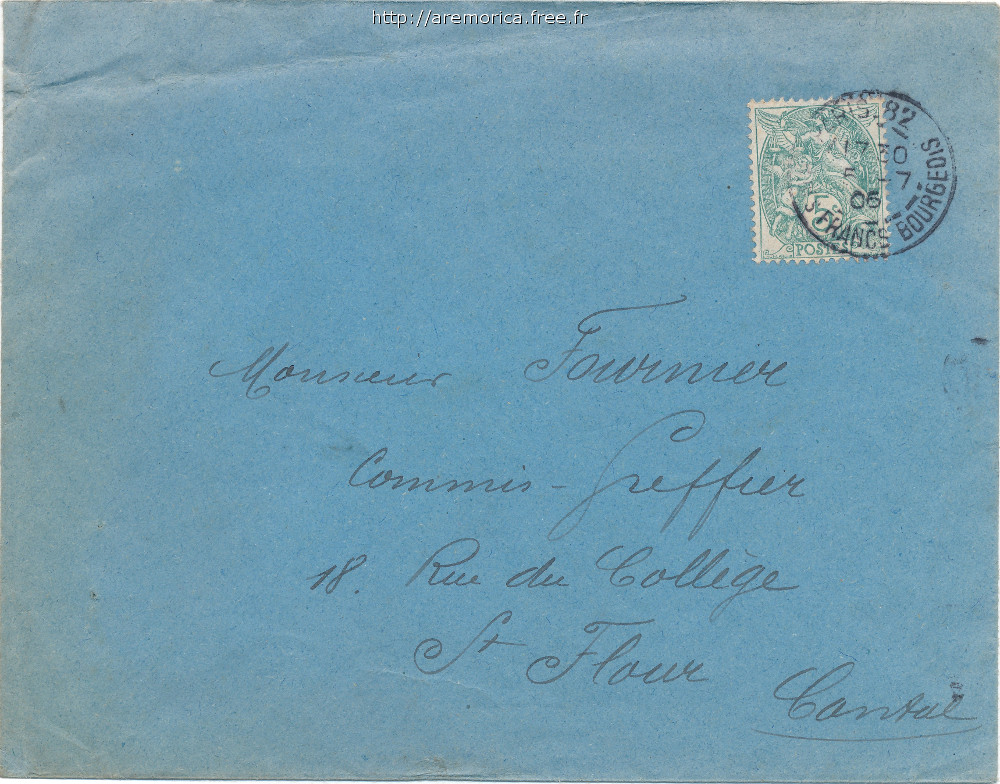 http://aremorica.free.fr
82
17 30
-7
06
FRANCS BOURGEOIS
5
POSTE
Monsieur Fournier
Commis-Greffier
18 Rue du Collège
St Flour
Cantal